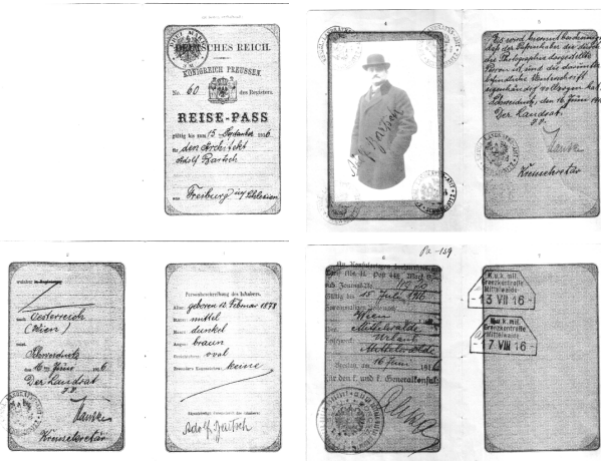 DEUTSCHES REICH.
KÖNIGREICH PREUSSEN.
No. 60 des Registers.
REISE-PASS
gültig bis zum 15 September 1916
für den Architekt
Adolf Bartsch
aus Freiburg in/Schlesien
Adolf Bartsch
Es wird hiermit bescheinigt,
daß der Paßinhaber die durch
die Photographie dargestellte
Person ist und die darunter
befindliche Unterschrift
eigenhändig vollzogen hat.
Schweidnitz, den 16 Juni 19
Der Landrat
Kreissekretär
nach Oesterreich
(Wien)
Schweidnitz
den 16 Juni 1916
Der Landrat
Kreissekretär
Personbeschreibung des Inhabers.
geboren 12. Februar 1878
mittel
dunkel
braun
oval
keine
Adolf Bartsch
Pa-129
15 Juli 1916
Wien
Mittelwalde
Urlaub
Mittelwalde
Breslau, am 16 Juni 1916
Für den k. und k. Generalkonsul
K. u. k. mil.
Grenzkontrolle
Mittelwalde
- 13 VII 16 -
K. u. k. mil.
Grenzkontrolle
Mittelwalde
17 VIII 16 -